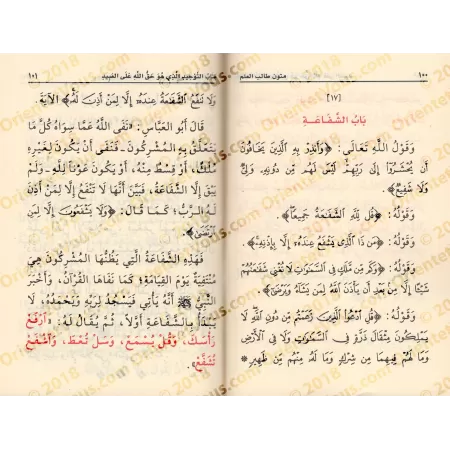 ١٠٠ متون طالب العلم
[١٧]
بَابُ الشَّفَاعَةِ
وَقَوْلُ اللَّهِ تَعَالَى: ﴿وَأَنذِرْ بِهِ الَّذِينَ يَخَافُونَ
أَن يُحْشَرُوا إِلَى رَبِّهِمْ لَيْسَ لَهُم مِّن دُونِهِ وَلِيٌّ
وَلَا شَفِيعٌ﴾.
وَقَوْلُهُ: ﴿قُل لِّلَّهِ الشَّفَاعَةُ جَمِيعًا﴾.
وَقَوْلُهُ: ﴿مَن ذَا الَّذِي يَشْفَعُ عِندَهُ إِلَّا بِإِذْنِهِ﴾.
وَقَوْلُهُ: ﴿وَكَم مِّن مَّلَكٍ فِي السَّمَاوَاتِ لَا تُغْنِي شَفَاعَتُهُمْ
شَيْئًا إِلَّا مِن بَعْدِ أَن يَأْذَنَ اللَّهُ لِمَن يَشَاءُ وَيَرْضَى﴾.
وَقَوْلُهُ: ﴿قُلِ ادْعُوا الَّذِينَ زَعَمْتُم مِّن دُونِ اللَّهِ لَا
يَمْلِكُونَ مِثْقَالَ ذَرَّةٍ فِي السَّمَاوَاتِ وَلَا فِي الْأَرْضِ
وَمَا لَهُمْ فِيهِمَا مِن شِرْكٍ وَمَا لَهُ مِنْهُم مِّن ظَهِيرٍ *
كتاب التوحيد الذي هو حق الله على العبيد ١٠١
وَلَا تَنفَعُ الشَّفَاعَةُ عِندَهُ إِلَّا لِمَنْ أَذِنَ لَهُ﴾ الآيَةَ.
قَالَ أَبُو العَبَّاسِ: «نَفَى اللَّهُ عَمَّا سِوَاهُ كُلَّ مَا
يَتَعَلَّقُ بِهِ المُشْرِكُونَ، فَنَفَى أَنْ يَكُونَ لِغَيْرِهِ
مُلْكٌ، أَوْ قِسْطٌ مِنْهُ، أَوْ يَكُونَ عَوْناً لِلَّهِ، وَلَمْ
يَبْقَ إِلَّا الشَّفَاعَةُ، فَبَيَّنَ أَنَّهَا لَا تَنْفَعُ إِلَّا لِمَنْ أَذِنَ
لَهُ الرَّبُّ؛ كَمَا قَالَ: ﴿وَلَا يَشْفَعُونَ إِلَّا لِمَنِ
ارْتَضَى﴾.
فَهَذِهِ الشَّفَاعَةُ الَّتِي يَظُنُّهَا المُشْرِكُونَ هِيَ
مُنْتَفِيَةٌ يَوْمَ القِيَامَةِ؛ كَمَا نَفَاهَا القُرْآنُ، وَأَخْبَرَ
النَّبِيُّ ﷺ أَنَّهُ يَأْتِي فَيَسْجُدُ لِرَبِّهِ وَيَحْمَدُهُ، لَا
يَبْدَأُ بِالشَّفَاعَةِ أَوَّلاً، ثُمَّ يُقَالُ لَهُ: «ارْفَعْ
رَأْسَكَ، وَقُلْ يُسْمَعْ، وَسَلْ تُعْطَ، وَاشْفَعْ
تُشَفَّعْ».
Orientetulus.com © 2018